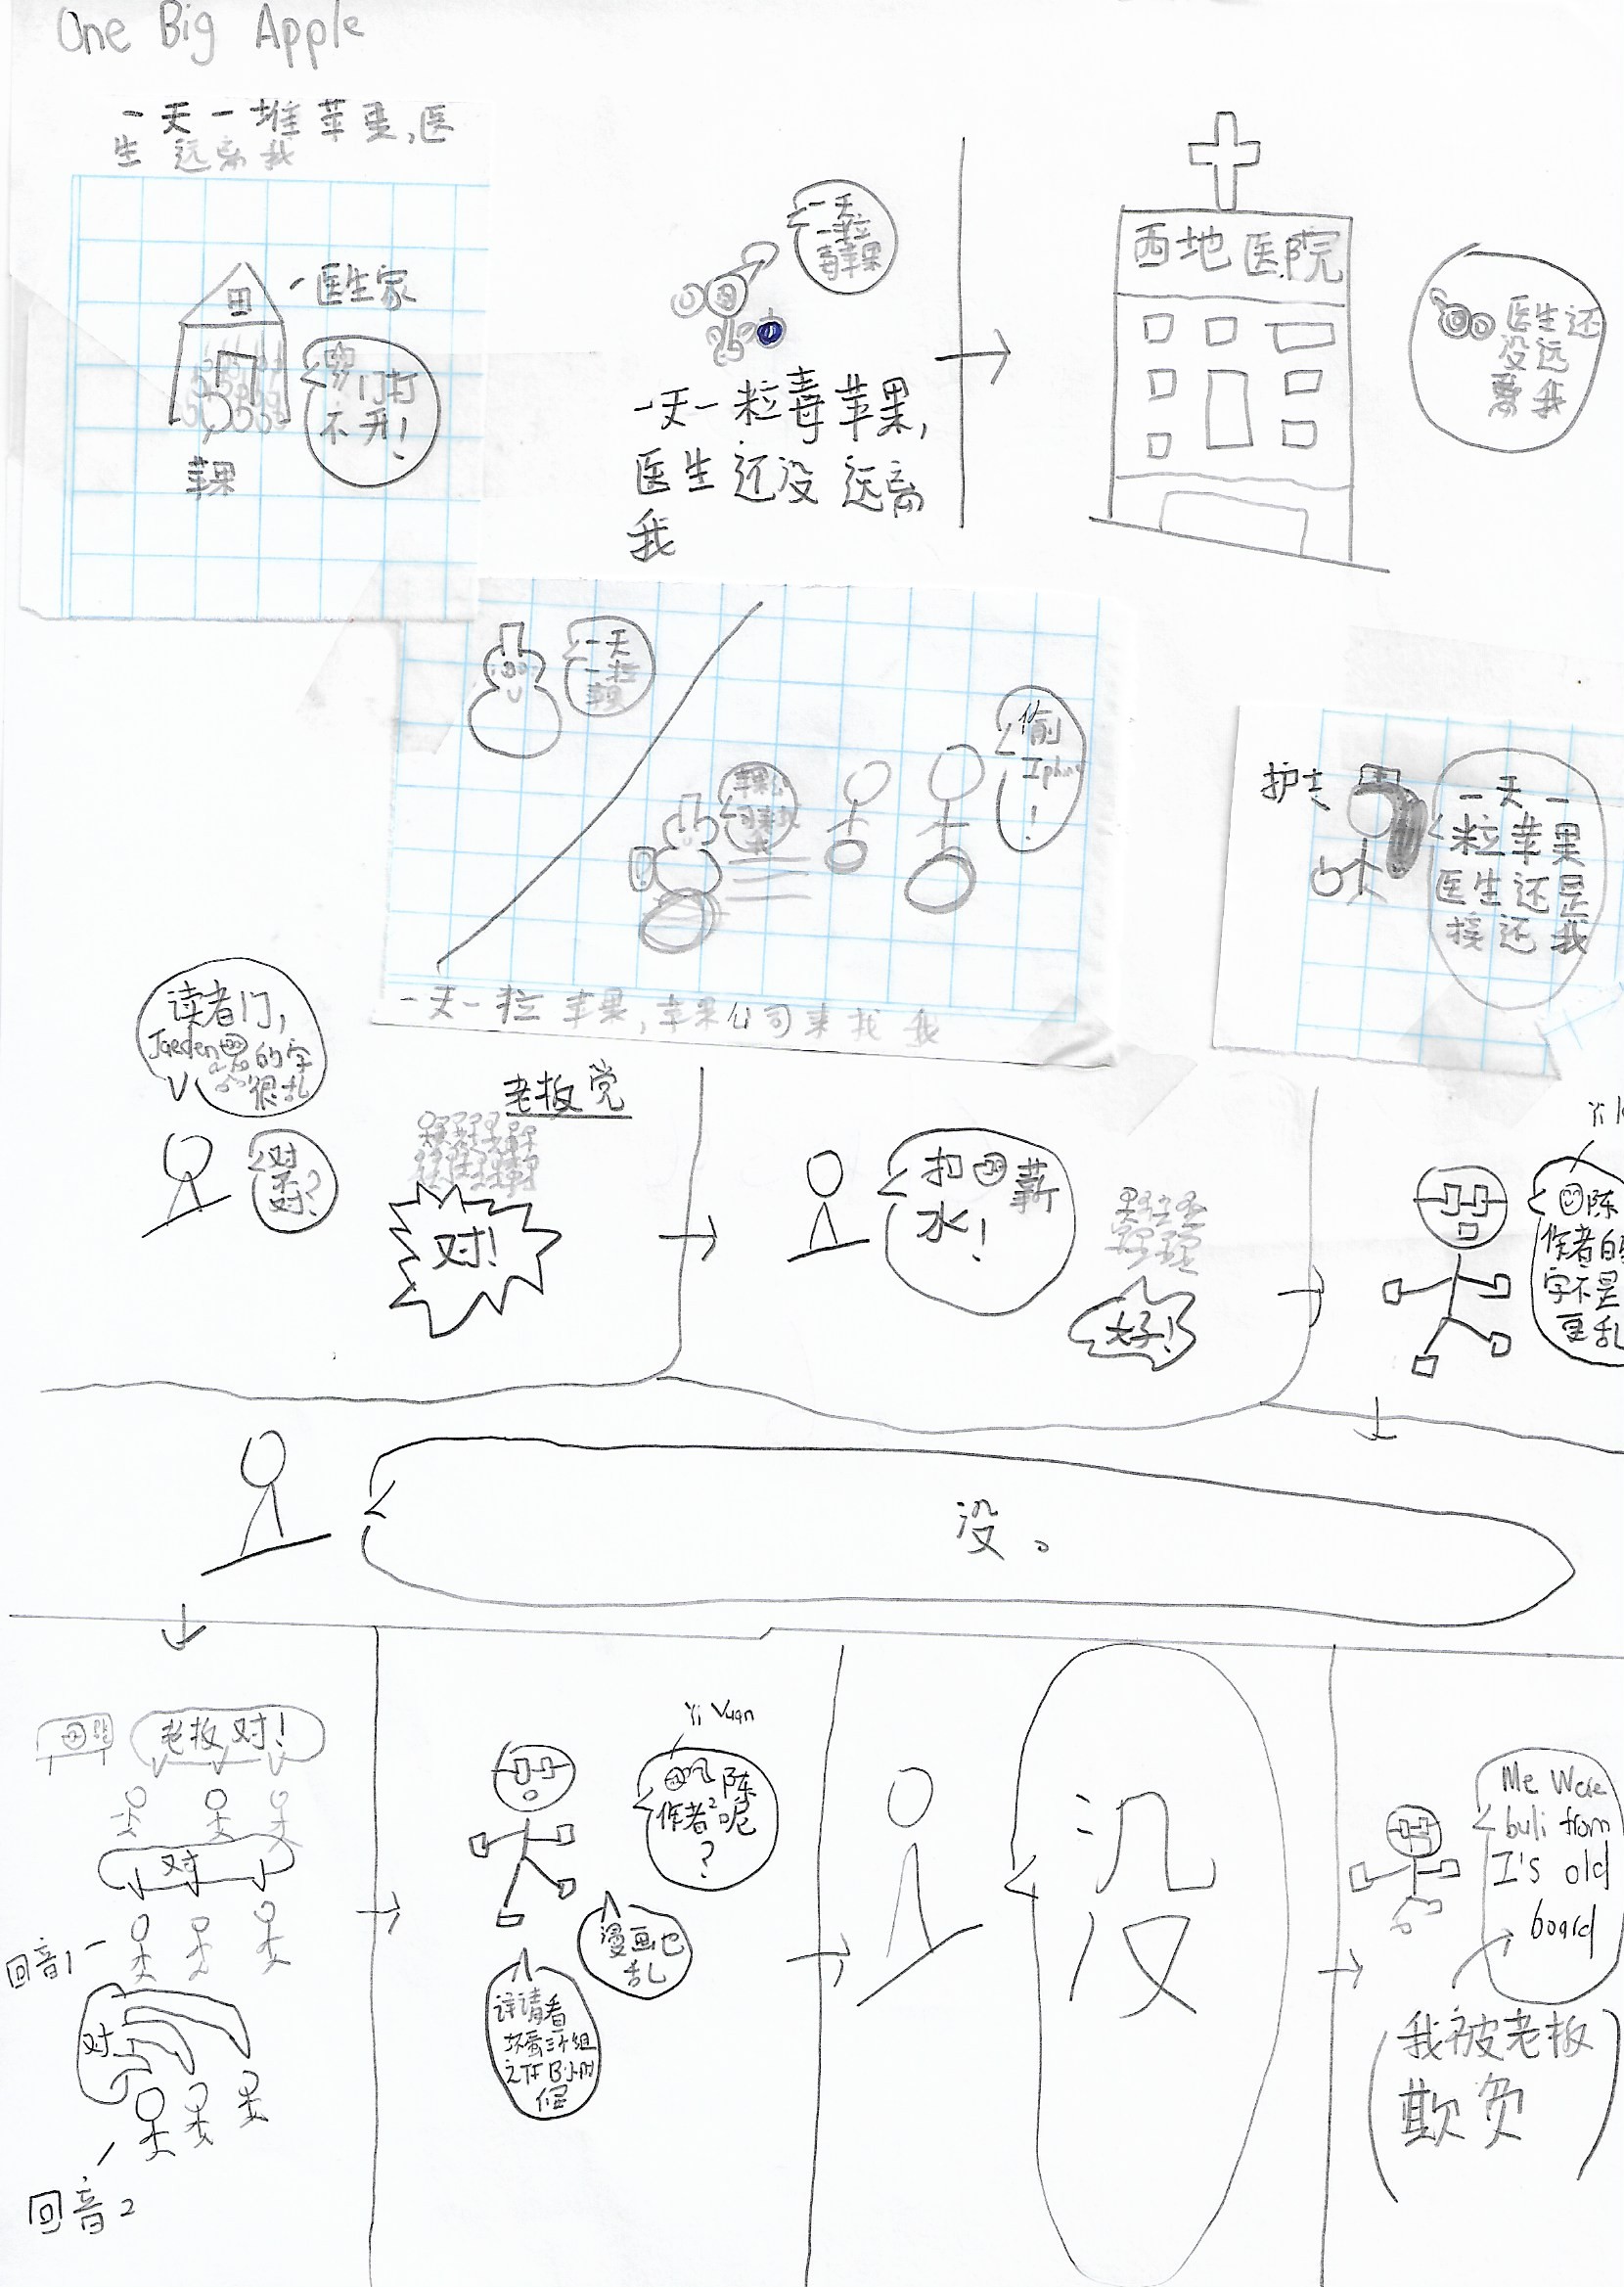 One Big Apple
一天一堆苹果,医
生远离我
医生家
门打
不开!
苹果
一天
一粒
毒苹果
一天一粒毒苹果,
医生还没远离
我
西地医院
医生还
没远
离我
一天
一粒
苹果
苹果公
司来找
我
偷
Iphone
!
一天一粒苹果,苹果公司来找我
护士
一天一
粒苹果
医生还是
接近我
读者门,
Jaeden
的字
很乱
对
不
对?
老板党
对!
扣薪
水!
好!
陈
作者的
字不是
更乱
没。
老板对!
对
回音1
对
回音2
Yi Yuan
陈
作者2呢
?
漫画也
乱
详请看
坏蛋三人组
之TFB小时
候
没
Me Were
buli from
I's old
board
(我被老板
欺负)